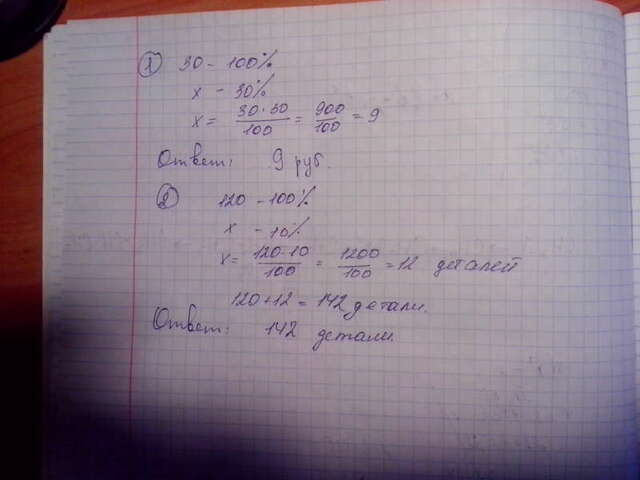 1 30 - 100%
x - 30%
x = 30·30/100 = 900/100 = 9
Ответ: 9 руб.
2 120 - 100%
x - 10%
x = 120·10/100 = 1200/100 = 12 деталей
120+12 = 142 детали.
Ответ: 142 детали.